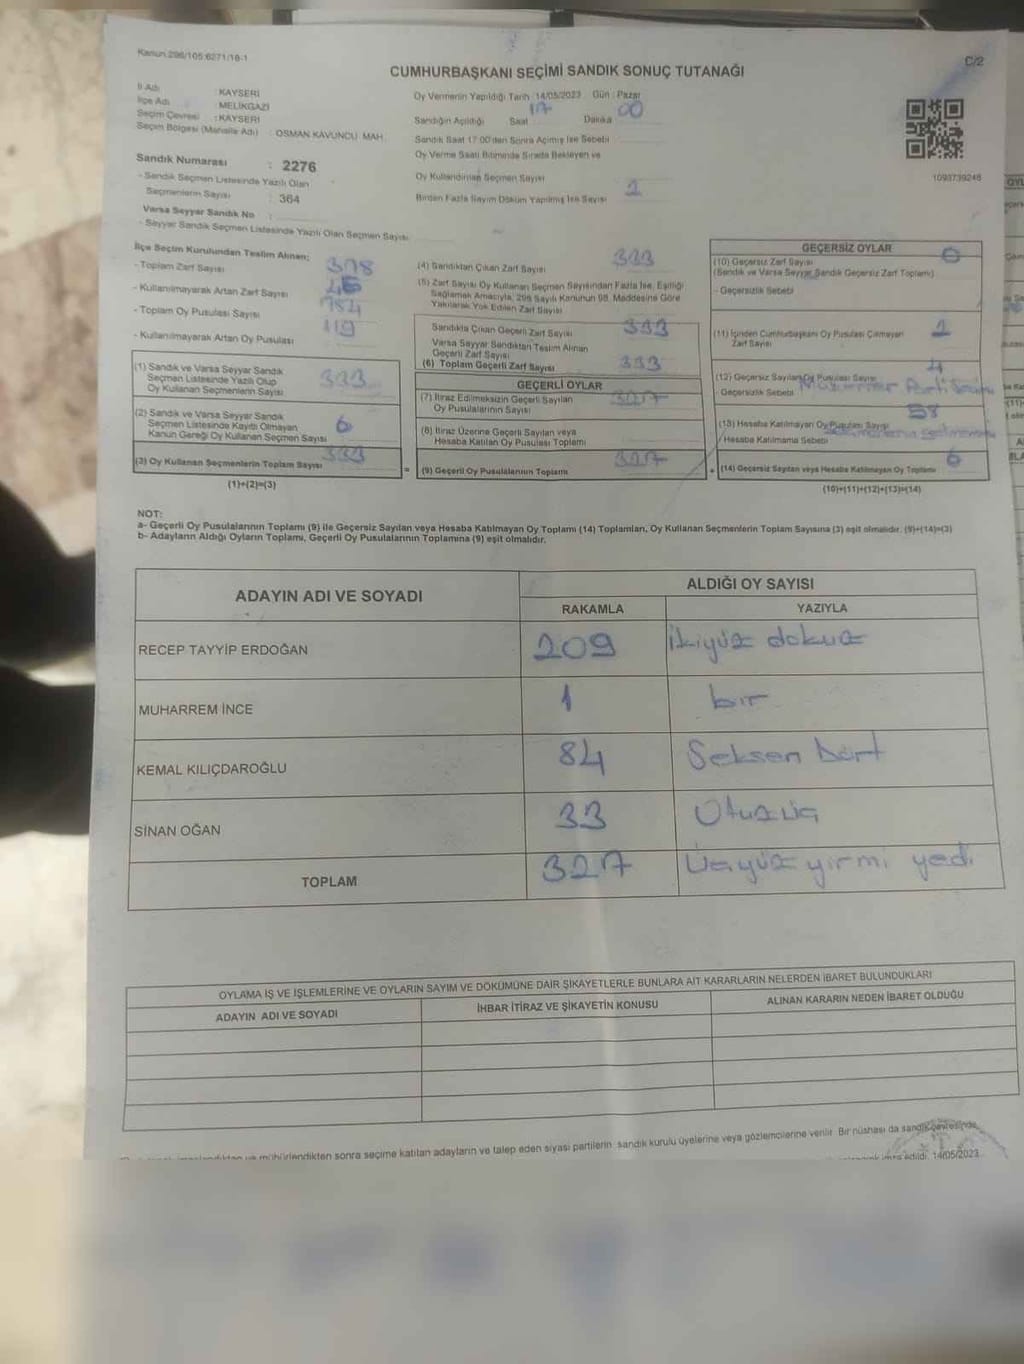 Kanun 298/105 6271/18-1
C/2
CUMHURBAŞKANI SEÇİMİ SANDIK SONUÇ TUTANAĞI
İl Adı : KAYSERİ
İlçe Adı : MELİKGAZİ
Seçim Çevresi : KAYSERİ
Seçim Bölgesi (Mahalle Adı) : OSMAN KAVUNCU MAH.
Sandık Numarası : 2276
- Sandık Seçmen Listesinde Yazılı Olan
Seçmenlerin Sayısı : 364
Varsa Seyyar Sandık No :
- Seyyar Sandık Seçmen Listesinde Yazılı Olan Seçmen Sayısı
Oy Vermenin Yapıldığı Tarih : 14/05/2023 Gün : Pazar
Sandığın Açıldığı Saat 17 Dakika 00
Sandık Saat 17:00'den Sonra Açılmış İse Sebebi
Oy Verme Saati Bitiminde Sırada Bekleyen ve
Oy Kullandırılan Seçmen Sayısı
Birden Fazla Sayım Döküm Yapılmış İse Sayısı
1093739246
İlçe Seçim Kurulundan Teslim Alınan;
- Toplam Zarf Sayısı 378
- Kullanılmayarak Artan Zarf Sayısı 45
- Toplam Oy Pusulası Sayısı
- Kullanılmayarak Artan Oy Pusulası 119
(1) Sandık ve Varsa Seyyar Sandık
Seçmen Listesinde Yazılı Olup
Oy Kullanan Seçmenlerin Sayısı 333
(2) Sandık ve Varsa Seyyar Sandık
Seçmen Listesinde Kayıtlı Olmayan
Kanun Gereği Oy Kullanan Seçmen Sayısı 0
(3) Oy Kullanan Seçmenlerin Toplam Sayısı 333
(1)+(2)=(3)
(4) Sandıktan Çıkan Zarf Sayısı 333
(5) Zarf Sayısı Oy Kullanan Seçmen Sayısından Fazla İse, Eşitliği
Sağlamak Amacıyla, 298 Sayılı Kanunun 98. Maddesine Göre
Yakılarak Yok Edilen Zarf Sayısı
Sandıkta Çıkan Geçerli Zarf Sayısı 333
Varsa Seyyar Sandıktan Teslim Alınan
Geçerli Zarf Sayısı
(6) Toplam Geçerli Zarf Sayısı 333
GEÇERLİ OYLAR
(7) İtiraz Edilmeksizin Geçerli Sayılan
Oy Pusulalarının Sayısı 327
(8) İtiraz Üzerine Geçerli Sayılan veya
Hesaba Katılan Oy Pusulası Toplamı
(9) Geçerli Oy Pusulalarının Toplamı 327
GEÇERSİZ OYLAR
(10) Geçersiz Zarf Sayısı 0
(Sandık ve Varsa Seyyar Sandık Geçersiz Zarf Toplamı)
- Geçersizlik Sebebi
(11) İçinden Cumhurbaşkanı Oy Pusulası Çıkmayan
Zarf Sayısı
(12) Geçersiz Sayılan Oy Pusula Sayısı 4
- Geçersizlik Sebebi
(13) Hesaba Katılmayan Oy Pusulası Sayısı
/ Hesaba Katılmama Sebebi
(14) Geçersiz Sayılan veya Hesaba Katılmayan Oy Toplamı 6
(10)+(11)+(12)+(13)=(14)
NOT:
a- Geçerli Oy Pusulalarının Toplamı (9) ile Geçersiz Sayılan veya Hesaba Katılmayan Oy Toplamı (14) Toplamları, Oy Kullanan Seçmenlerin Toplam Sayısına (3) eşit olmalıdır. (9)+(14)=(3)
b- Adayların Aldığı Oyların Toplamı, Geçerli Oy Pusulalarının Toplamına (9) eşit olmalıdır.
ADAYIN ADI VE SOYADI
ALDIĞI OY SAYISI
RAKAMLA YAZIYLA
RECEP TAYYİP ERDOĞAN 209 İkiyüz dokuz
MUHARREM İNCE 1 bir
KEMAL KILIÇDAROĞLU 84 Seksen Dört
SİNAN OĞAN 33 Otuz üç
TOPLAM 327 Üçyüz yirmi yedi
OYLAMA İŞ VE İŞLEMLERİNE VE OYLARIN SAYIM VE DÖKÜMÜNE DAİR ŞİKAYETLERLE BUNLARA AİT KARARLARIN NELERDEN İBARET BULUNDUKLARI
ADAYIN ADI VE SOYADI
İHBAR İTİRAZ VE ŞİKAYETİN KONUSU
ALINAN KARARIN NEDEN İBARET OLDUĞU
mühürlendikten sonra seçime katılan adayların ve talep eden siyasi partilerin sandık kurulu üyelerine veya gözlemcilerine verilir. Bir nüshası da sandık çevresinde
14/05/2023